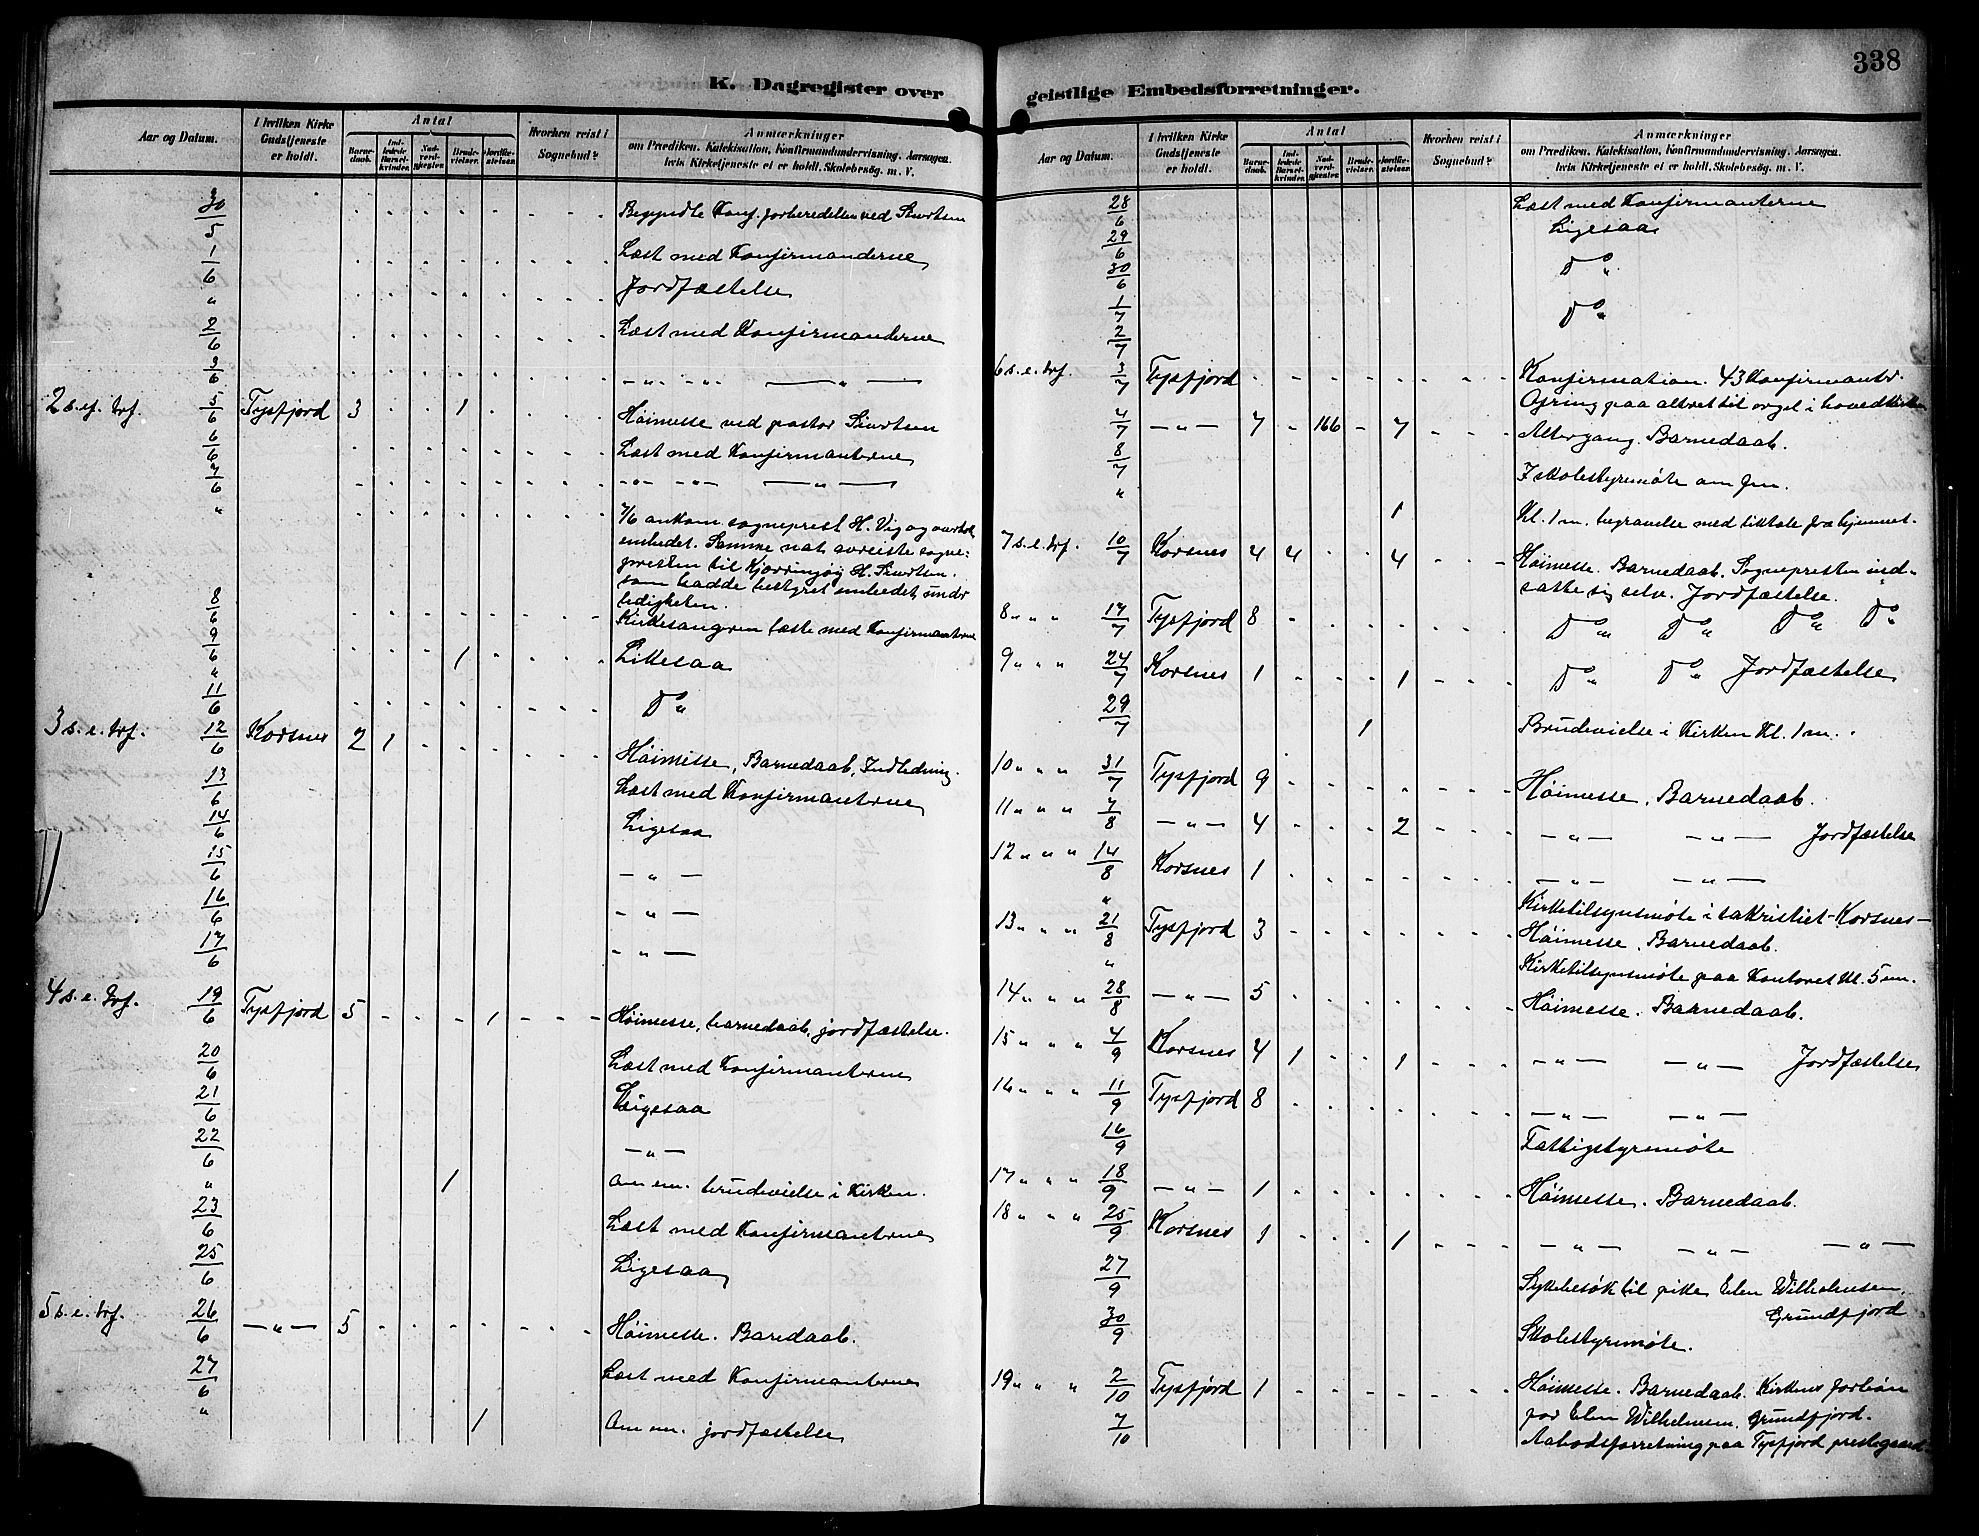 338
K. Dagregister over
Aar og Datum.
I hvilken Kirke Gudstjeneste er holdt.
Antal
Barnedaab.
Indledede Barselkvinder.
Nadverdgjæster.
Brudevielser.
Jordfæstelser.
Hvorhen reist i Sognebud?
Anmærkninger
om Prædiken, Katekisation, Konfirmandundervisning, Aarsagen,
hvis Kirketjeneste ei er holdt, Skolebesøg m. V.
30/5 Begyndte Konf. forberedelsen ved
1/6 Læst med Konfirmanderne
" Jordfæstelse
2/6 Læst med Konfirmanderne
3/6 - " - " - — " —
2 s. ef. trf. 5/6 Tysfjord 3 1 Høimesse ved pastor
6/6 Læst med Konfirmanterne
7/6 - " - - " - — " —
" 7/6 ankom sogneprest H. Vig og overtok
embedet. Samme nat avreiste sogne-
presten til Kjerringøy H.
som hadde bestyret embedet under
ledigheten.
8/6 Kirkesangeren læste med Konfirmanterne
9/6 1 Likesaa
"
11/6 Do "
3 s. e. trf. 12/6 Korsnes 2 1 Høimesse, Barnedaab, Indledning.
13/6 Læst med Konfirmanterne
14/6 Ligesaa
15/6 — " —
16/6 — " —
17/6 — " —
4 s. e. trf. 19/6 Tysfjord 5 1 Høimesse, barnedaab, jordfæstelse.
20/6 Læst med Konfirmanterne
21/6 Ligesaa
22/6 — " —
" 1 Om em. brudevielse i Kirken.
23/6 Læst med Konfirmanterne
25/6 Ligesaa
5 s. e. trf. 26/6 — " — 5 Høimesse. Baredaab.
27/6 Læst med Konfirmanterne
" 1 Om em. jordfæstelse
geistlige Embedsforretninger.
Aar og Datum.
I hvilken Kirke Gudstjeneste er holdt.
Antal
Barnedaab.
Indledede Barselkvinder.
Nadverdgjæster.
Brudevielser.
Jordfæstelser.
Hvorhen reist i Sognebud?
Anmærkninger
om Prædiken, Katekisation, Konfirmandundervisning, Aarsagen,
hvis Kirketjeneste ei er holdt, Skolebesøg m. V.
28/6 Læst med Konfirmanterne
29/6 Ligesaa
30/6 Do "
1/7 Do "
2/7
6 s. e. trf. 3/7 Tysfjord Konfirmation. 43 Konfirmanter.
Ofring paa altret til orgel i hovedkirken
4/7 — " — 7 166 7 Altergang. Barnedaab.
8/7 I skolestyremøte om fm.
" 1 Kl. 1 m. begravelse med liktale fra hjemmet.
7 s. e. trf. 10/7 Korsnes 4 4 4 Høimesse. Barnedaab. Sognepresten ind-
satte sig selv. Jordfæstelse.
8 " " 17/7 Tysfjord 8 Do " Do " Do " Do "
9 " " 24/7 Korsnes 1 1 Do " Do " Jordfæstelse
29/7 1 Brudevielse i Kirken Kl. 1 m.
10 " " 31/7 Tysfjord 9 Høimesse. Barnedaab.
11 " " 7/8 — " — 4 2 — " — — " — Jordfæstelse
12 " " 14/8 Korsnes 1 — " — — " —
" Kirketilsynsmøte i sakristiet - Korsnes -
13 " " 21/8 Tysfjord 3 Høimesse. Barnedaab.
" Kirketilsynsmøte paa Kontoret Kl. 5 em.
14 " " 28/8 — " — 5 Høimesse. Barnedaab.
15 " " 4/9 Korsnes 4 1 1 — " — — " — Jordfæstelse
16 " " 11/9 Tysfjord 8 — " — — " —
16/9 Fattigstyremøte
17 " " 18/9 — " — 1 Høimesse. Barnedaab.
18 " " 25/9 Korsnes 1 1 — " — — " — — " —
27/9 Sykebesøk til pike Elen Wilhelmsen,
Grundfjord
30/9 Skolestyremøte.
19 " " 2/10 Tysfjord 1 Høimesse. Barnedaab. Kirkens forbøn
for Elen Wilhelmsen, Grundfjord.
7/10 Aabodsforretning paa Tysfjord prestegaard